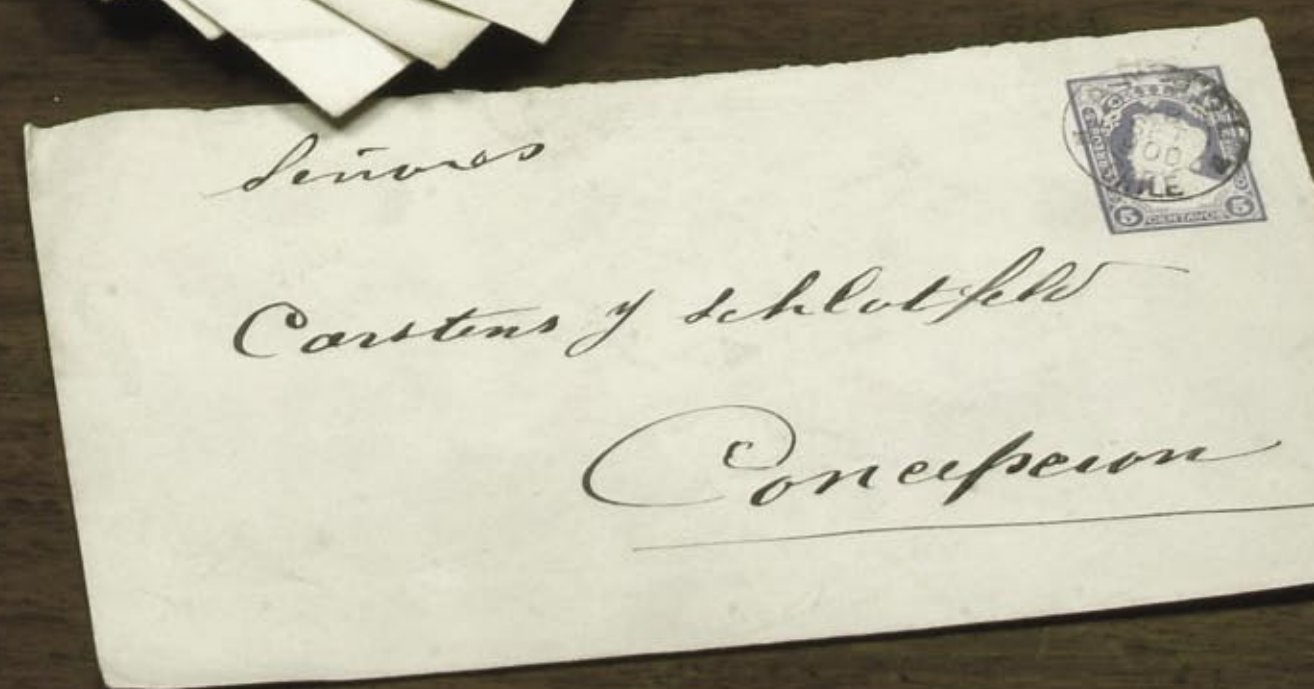 Señores
Carstens y Schlotfeld
Concepcion
5 CENTAVOS 5
00